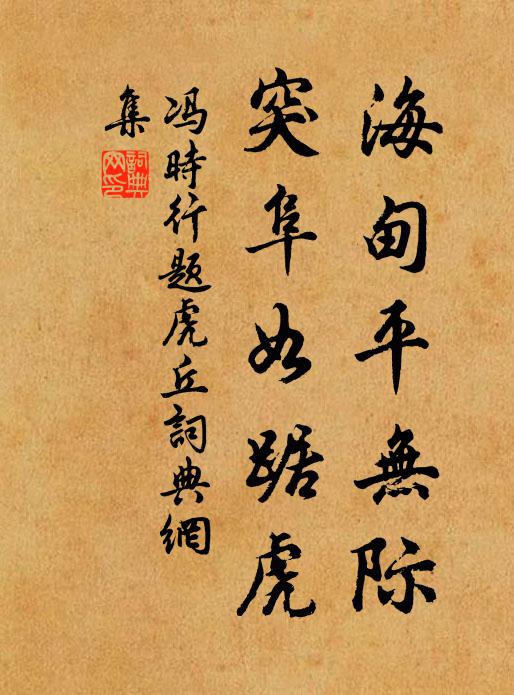 海甸平無际
突阜如踞虎
冯時行題虎丘詞典網
集
詞典
网印